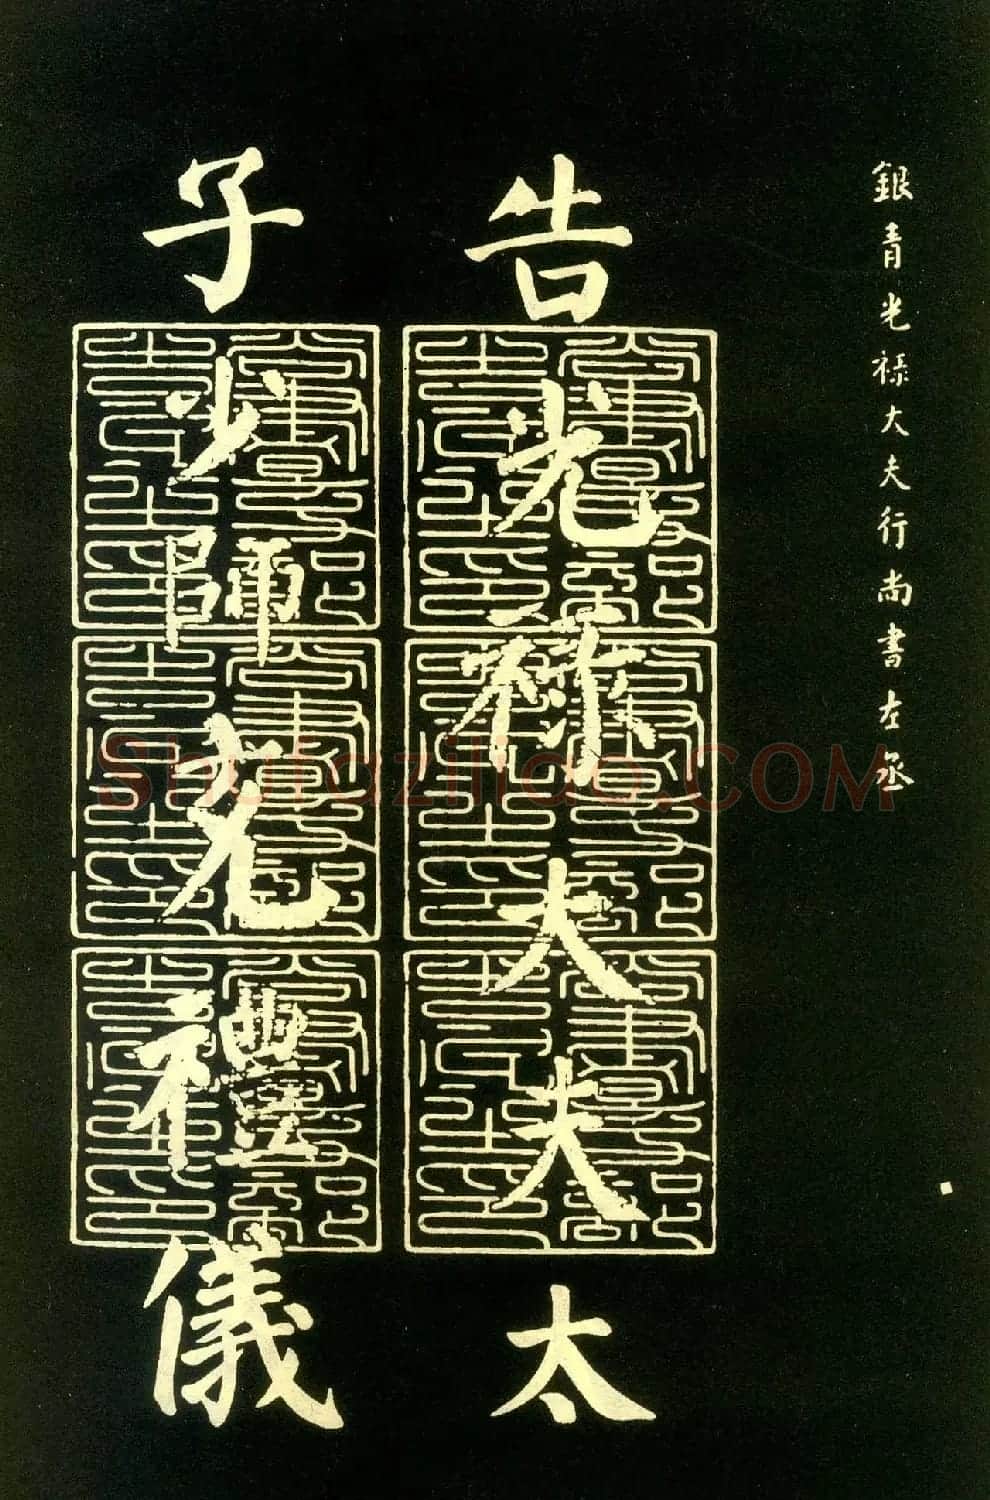 銀青光禄大夫行尚書左丞
告光祿大夫太
子少師充禮儀
Shufaziliao.COM